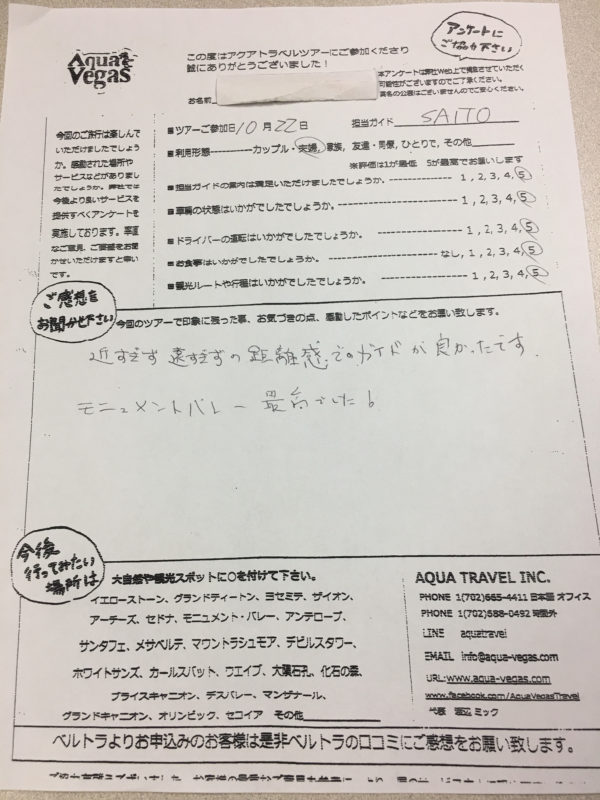 Aqua Vegas
この度はアクアトラベルツアーにご参加くださり
誠にありがとうございました！
アンケートに
ご協力下さい
本アンケートは弊社Web上で掲載させていただく
可能性がございますのでご了承ください。
実名の公表はございませんのでご安心ください。
お名前
■ツアーご参加日 10 月 22 日 担当ガイド SAITO
■利用形態-----------カップル・夫婦，家族，友達・同僚，ひとりで，その他
※評価は1が最低　5が最高でお願いします
■担当ガイドの案内は満足いただけましたでしょうか。 --------------- 1 , 2, 3, 4, 5
■車輌の状態はいかがでしたでしょうか。 --------------- 1, 2, 3, 4, 5
■ドライバーの運転はいかがでしたでしょうか。 --------------- 1, 2, 3, 4, 5
■お食事はいかがでしたでしょうか。 --------------- なし, 1, 2, 3, 4, 5
■観光ルートや行程はいかがでしたでしょうか。 --------------- 1, 2, 3, 4, 5
今回のご旅行は楽しんで
いただけましたでしょう
か。感動された場所や
サービスなどがありまし
たでしょうか。弊社では
今後より良いサービスを
提供すべくアンケートを
実施しております。率直
なご意見、ご要望をお聞
かせいただけますと幸い
です。
ご感想を
お聞かせ下さい
今回のツアーで印象に残った事、お気づきの点、感動したポイントなどをお願い致します。
近すぎず 遠すぎずの 距離感でのガイドが 良かったです.
モニュメントバレー 最高でした!
今後
行ってみたい
場所は
大自然や観光スポットに○を付けて下さい。
イエローストーン、グランドティートン、ヨセミテ、ザイオン、
アーチーズ、セドナ、モニュメント・バレー、アンテロープ、
サンタフェ、メサベルデ、マウントラシュモア、デビルスタワー、
ホワイトサンズ、カールスバット、ウエイブ、大隕石孔、化石の森、
ブライスキャニオン、デスバレー、マンザナール、
グランドキャニオン、オリンピック、セコイア　その他
AQUA TRAVEL INC.
PHONE 1(702)665-4411 日本語 オフィス
PHONE 1(702)588-0492 時間外
LINE aquatravel
EMAIL info@aqua-vegas.com
URL: www.aqua-vegas.com
www.facebook.com/AquaVegasTravel
代表 渡辺 ミック
ベルトラよりお申込みのお客様は是非ベルトラの口コミにご感想をお願い致します。